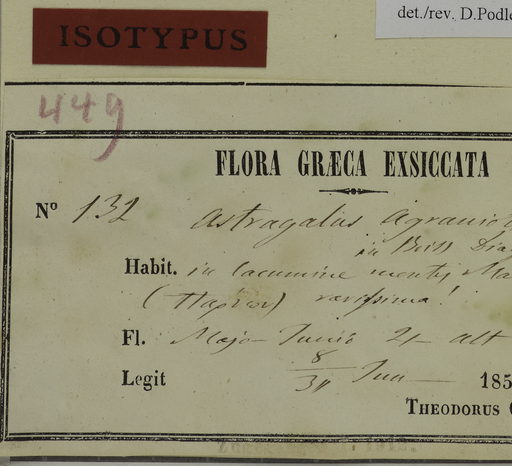 ISOTYPUS
det./rev. D.Podle
449
FLORA GRÆCA EXSICCATA
Nº 132 Astragalus Agraniot
in Boiss Dia
Habit. in cacumine montis Ma
rarissima!
Fl. Majo Junio 24 alt
Legit 8 Jun 185
THEODORUS